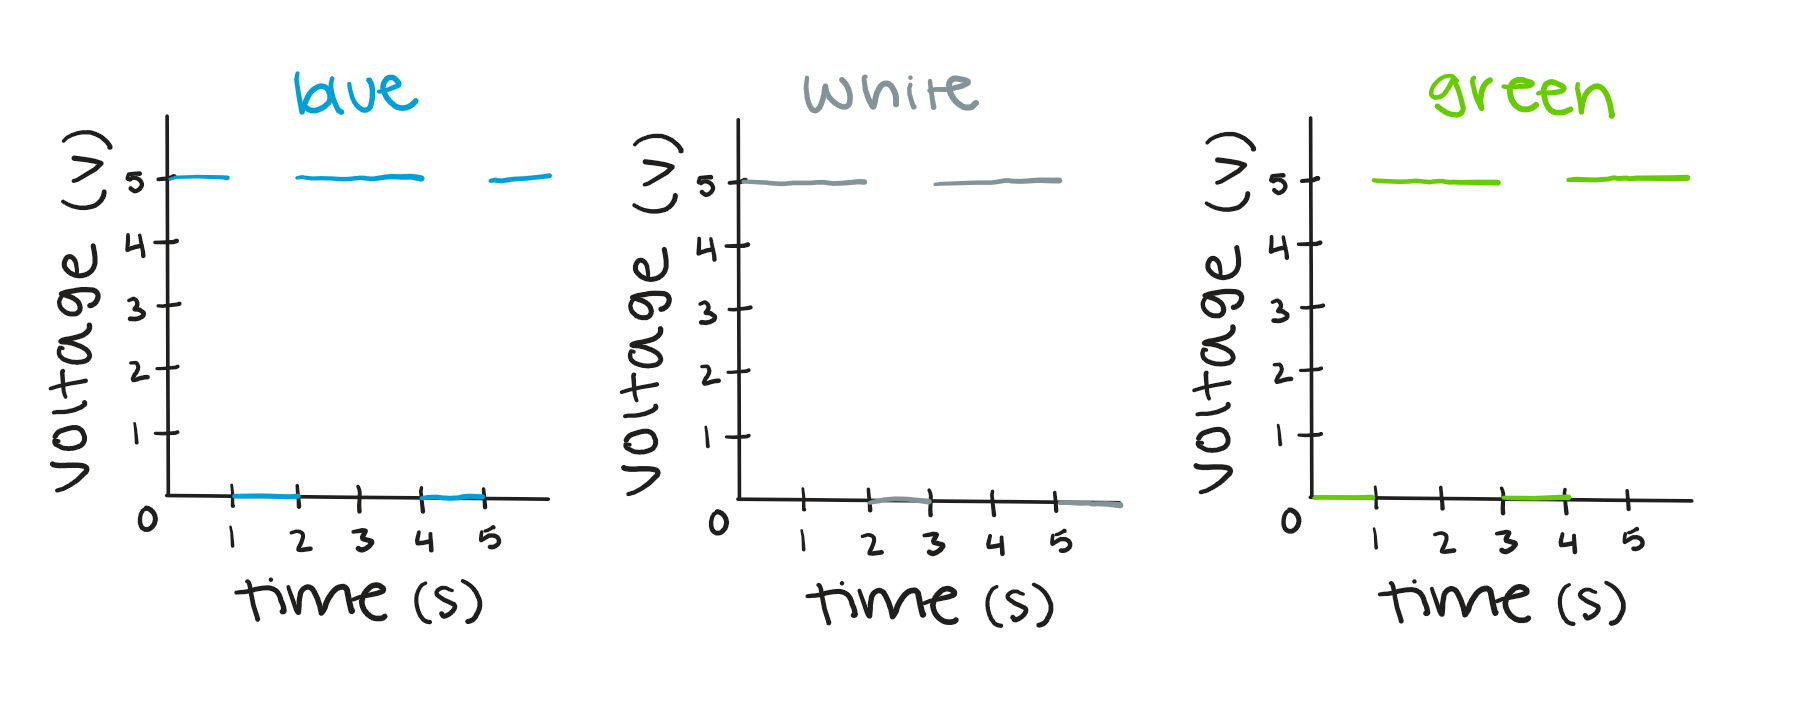 blue
voltage (v)
5
4
3
2
1
0
1 2 3 4 5
time (s)
white
voltage (v)
5
4
3
2
1
0
1 2 3 4 5
time (s)
green
voltage (v)
5
4
3
2
1
0
1 2 3 4 5
time (s)